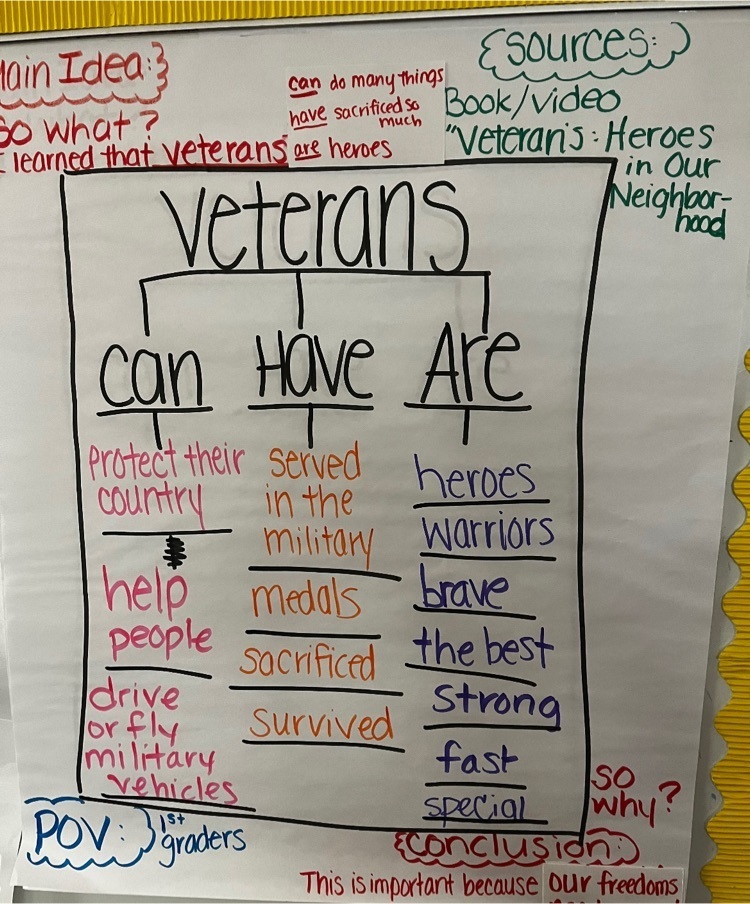 Main Idea:
So what?
I learned that veterans
can do many things
have sacrificed so
much
are heroes
Sources:
Book/video
"Veteran's: Heroes
in Our
Neighbor-
hood
Veterans
Can Have Are
protect their
country
help
people
drive
or fly
military
vehicles
served
in the
military
medals
sacrificed
survived
heroes
warriors
brave
the best
strong
fast
special
POV: 1st
graders
So
why?
Conclusion:
This is important because our freedoms